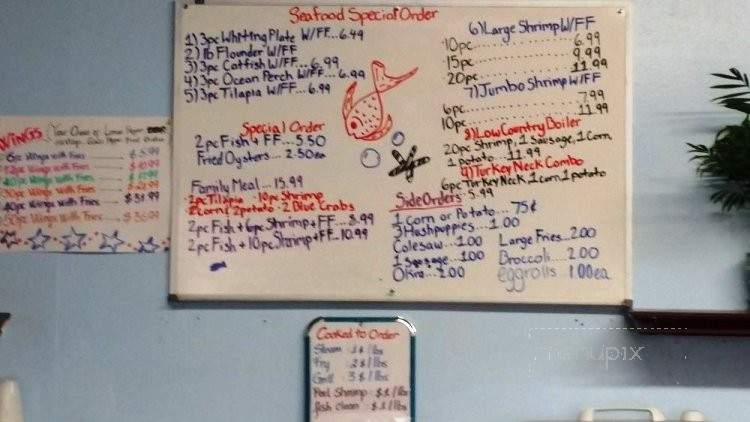 Seafood Special Order
1) 3pc Whiting Plate W/FF... 6.49
2) 1lb Flounder W/FF
3) 3pc Catfish W/FF... 6.99
4) 3pc Ocean Perch W/FF... 6.99
5) 3pc Tilapia W/FF... 6.99
Special Order
2pc Fish + FF... 5.50
Fried Oysters... 2.50ea
Family Meal... 15.99
2pc Tilapia - 10pc Shrimp
2 Corn 2 potato - 2 Blue Crabs
2pc Fish + 6pc Shrimp + FF... 8.99
2pc Fish + 10pc Shrimp + FF... 10.99
6) Large Shrimp W/FF
10pc... 6.99
15pc... 9.99
20pc... 11.99
7) Jumbo Shrimp W/FF
6pc... 7.99
10pc... 11.99
Low Country Boiler
20pc Shrimp, 1 Sausage, 1 Corn
1 potato... 11.99
Turkey Neck Combo
6pc Turkey Neck 1 corn 1 potato
5.99
Side Orders
1 corn or Potato... 75¢
3 Hushpuppies... 1.00
Colesaw... 1.00
1 Sausage... 1.00
Okra... 2.00
Large Fries... 2.00
Broccoli... 2.00
eggrolls 1.00ea
WINGS
Wings with Fries
Wings with Fries
Wings with Fries
Wings with Fries
Wings with Fries
Wings with Fries
Cooked to Order
Steam 1$/lbs
Fry 2$/lbs
Grill 3$/lbs
Peel Shrimp $1/lbs
fish clean $1/lbs
menupix